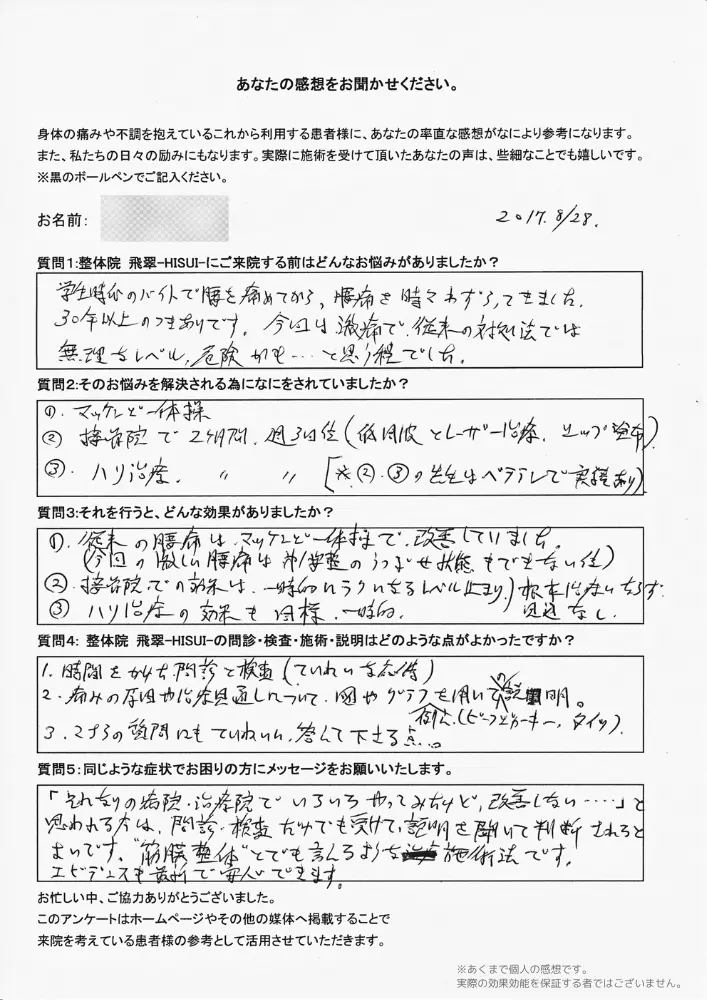 あなたの感想をお聞かせください。
身体の痛みや不調を抱えているこれから利用する患者様に、あなたの率直な感想がなにより参考になります。
また、私たちの日々の励みにもなります。実際に施術を受けて頂いたあなたの声は、些細なことでも嬉しいです。
※黒のボールペンでご記入ください。
お名前:
2017. 8/28.
質問1:整体院 飛翠-HISUI-にご来院する前はどんなお悩みがありましたか?
学生時代のバイトで腰を痛めてから、腰痛を時々わずらってきました。
30年以上のつきあいです。今回は激痛で、従来の対処法では
無理なレベル、危険かも…と思う程でした。
質問2:そのお悩みを解決される為になにをされていましたか?
①. マッケンジー体操
② 接骨院で2ヶ月間、週3回位(低周波とレーザー治療、シップ塗布)
③. ハリ治療、 〃 〃 [※②・③の先生はベテランで実績あり]
質問3:それを行うと、どんな効果がありましたか?
①. 従来の腰痛は、マッケンジー体操で、改善していました。
(今回の激しい腰痛は のうつぶせ状態もできない位)
② 接骨院での効果は、一時的にラクになるレベル止まり)根本治療にならず
③ ハリ治療の効果も同様、一時的、 見込なし。
質問4: 整体院 飛翠-HISUI-の問診・検査・施術・説明はどのような点がよかったですか?
1. 時間をかけた問診と検査(ていねいな応待)
2. 痛みの原因や治療見通しについて、図やグラフを用いての説明。
例え(ビーフジャーキー、タイツ)
3. こちらの質問にもていねいに答えて下さる点。
質問5:同じような症状でお困りの方にメッセージをお願いいたします。
「それなりの病院・治療院でいろいろやってみたけど、改善しない……」と
思われる方は、問診・検査だけでも受けて、説明を聞いて判断されると
よいです。"筋膜整体"とでも言えるような施術法です。
エビデンスも で安心できます。
お忙しい中、ご協力ありがとうございました。
このアンケートはホームページやその他の媒体へ掲載することで
来院を考えている患者様の参考として活用させていただきます。
※あくまで個人の感想です。
実際の効果効能を保証する者ではございません。